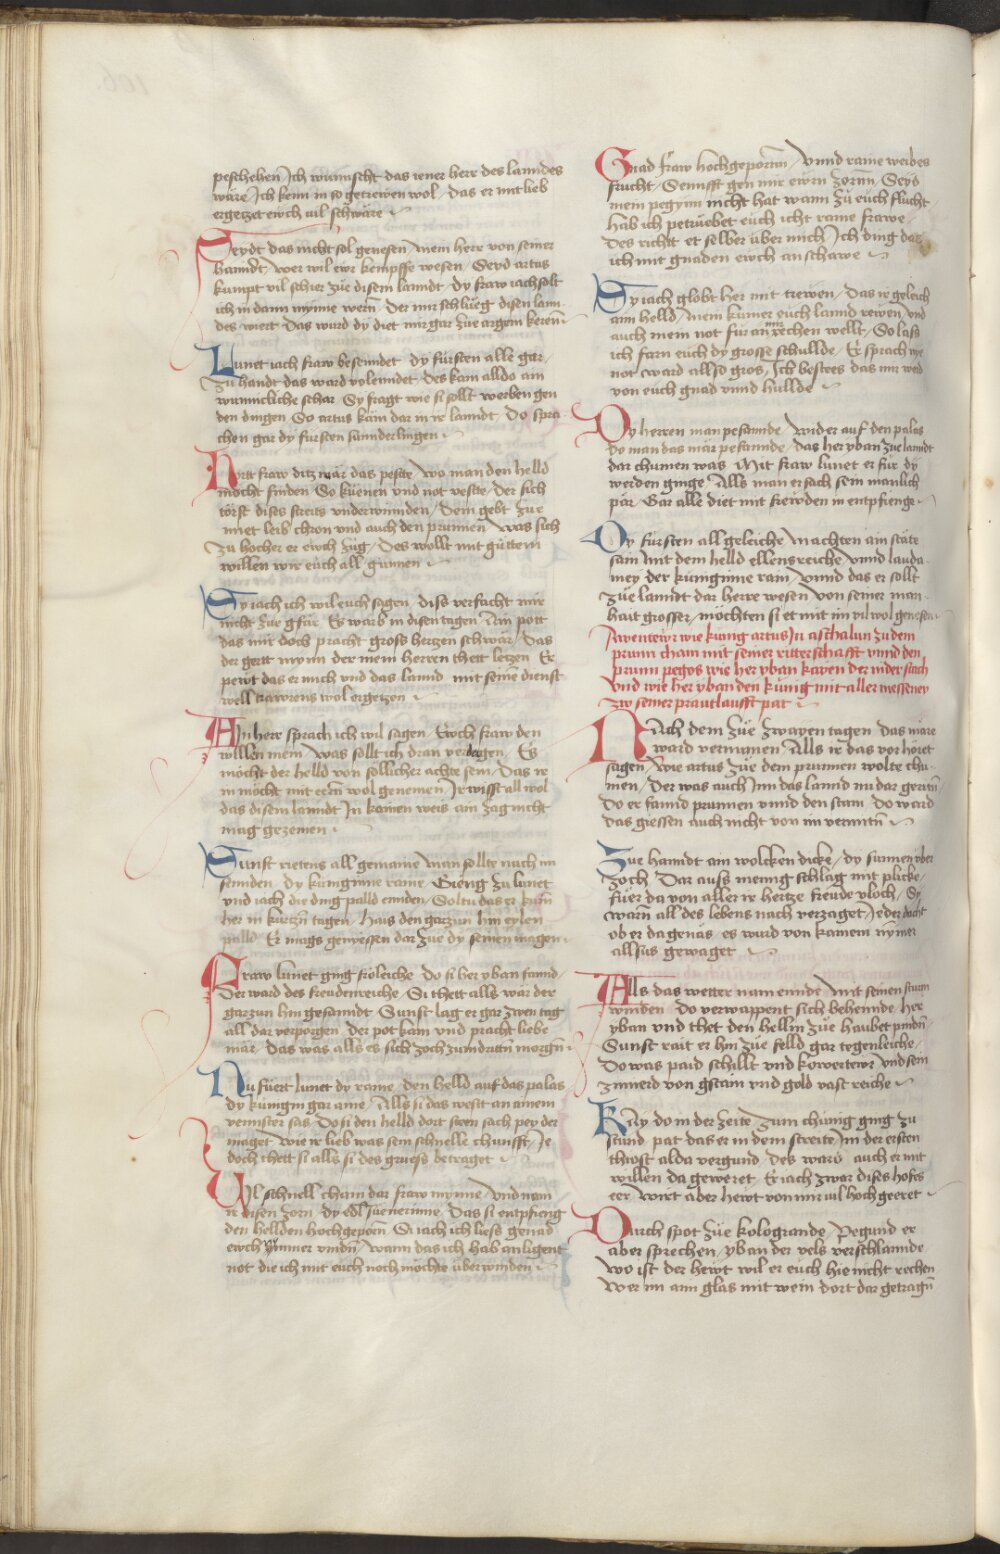 peschehen Ich wunnscht das iener herr des lanndes
wäre Ich kenn in so getrewen wol das er mit lieb
ergetzet ewch vil schwäre
Seydt das nicht sol genesen mein herr von seiner
hanndt wer wil ewr kempffe wesen Seyd artus
kumpt vil schier züe disem lanndt dy fraw iach solt
ich in dann mynne wern Der mir schlüeg disen lann
des wiert Das wurd dy diet mir gar züe argem keren
Lunet iach fraw besenndet dy fürsten alle gar
zu handt das ward volenndet des kam alldo ain
wunnicliche schar Sy fragt wie si sollt werben gen
den dingen So artus käm dar in ir lanndt Do spra
chen gar dy fursten sunnderlingen
Hort fraw ditz wär das peste wo man den helld
mocht finden So küenen vnd not veste der sich
törst dises streits vnderwinnden Dem gebt züe
miet leib chron vnd auch den prunnen was sich
zu hocher er ewch züg Des wollt mit güttem
willen wir euch all günnen
Sy iach ich wil euch sagen dise versacht mir
nicht züe gfär Es warb in disen tagen Ain pott
das mit doch pracht gross hertzen schwär Das
der gertt mynn der mein herren thett letzen Er
pewt das er mich vnd das lannd mit seine dienst
well trawrens wol ergetzen
Ain herr sprach ich wil sagen Ewch fraw den
willen mein was sollt ich dran verdagen Es
möcht der helld von sollicher achte sein Das ir
in möcht mit eren wol genemen Ir wisst all wol
das disem lanndt In kainen weis ain zag nicht
mag gezemen
Sunst rietens all gemaine Man sollte nach im
sennden dy kunginne raine Gieng zu lunet
vnd iach die ding palld ennden Soltu das er kum
her in kurtzn tagen hais den garzun hin eylen
palld Er mags genyessen dar züe dy seinen magen
Fraw lunet ging froleiche Do si her yban fannd
Der ward des freudenreiche Si thett alls wär der
garzun hin gesanndt Sunst lag er gar zwen tag
all dar verporgen der pot kam vnd pracht liebe
mär das was alls es sich zoch zum dritten morgn
Nu fuert lunet dy raine den helld auf das palas
dy kungin gar aine Alls si das west an ainem
vennster sas Do si den helld dort siren sach pey der
maget wie ir lieb was sein schnelle chunfft Je
doch thett si alls si des gruess betraget
Vil schnell cham dar fraw mynne vnd nam
ir disen zorn dy edl süenerinne Das si entpfieng
den hellden hochgeporn Si iach ich liess genad
ewch ymmer vindn wann das ich hab anligent
not die ich mit euch noch möchte überwinden
Gnad fraw hochgeporn vnnd raine weibes
frucht Sennfft gen mir ewrn zorn Seyd
mein pegynn nicht hat wann zü euch flucht
hab ich petruebet euch icht raine frawe
Des richtt et selber über mich Ich ding das
ich mit gnaden ewch anschawe
Sy iach globt her mit trewen Das ir geleich
ain helld mein kumer euch lannd rewen vnd
auch mein not für an mir rechen wellt So lass
ich farn euch dy grosse schullde Er sprach nye
not ward allso gros Ich bestees das mir werd
von euch gnad vnnd hullde
Dy herren man pesannde wider auf den palas
do man das mär pefannde das her yban züe lanndt
dar chumen was Mit fraw lunet er für dy
werden ginge Alls man ersach sein manlich
pär Gar alle diet mit frewden in entpfienge
Dy fürsten all geleiche Machten ain state
sam mit dem helld ellensreiche vnnd lauda
mey der künginne rain vnnd das er sollt
züe lanndt dar herre wesen von seiner man
hait grosser möchten si et mit im vil wol genesen
Awentewr wie kunig artus In aschalun zu dem
prunn cham mit seiner ritterschafft vnnd den
prunn pegos wie her yban kayen der nider stach
Vnd wie her yban den kung mit aller messeney
zw seiner prautlaufft pat
Nach dem züe zwayen tagen das märe
ward vernumen Alls ir das vor höret
sagen wie artus züe dem prunnen wolte chu
men Der was auch Inn das lannd nu dar gerittn
do er fannd prunnen vnnd den stam do ward
das giessen auch nicht von im vermitn
Züe hanndt ain wolcken dicke dy sunnen über
zoch Dar auss menig schlag mit plicke
füer da von aller ir hertze freude vloch Sy
warn all des lebens nach verzaget Jeder dacht
ob er da genas es wurd von kainem nymer
allsus gewaget
Alls das wetter nam ennde Mit seinen sturm
winden Do verwappent sich behennde her
yban vnd thet den hellm züe haubet pindn
Sunst rait er hin züe felld gar tegenleiche
Do was paid schillt vnd kowertewr vnd sein
zimierd von gstain vnd gold vast reiche
Kay do in der zeite zum chünig ging zu
stund pat das er in dem streite Im der ersten
thiost alda vergund des ward auch er mit
willen da geweret Er iach zwar dises hofes
eer wirt aber hewt von mir vil hoch geeret
Durch spot züe kologrande Pegund er
aber sprechen yban der vels verschlannde
wo ist der hewt wil er euch hie nicht rechen
Wer im ain glas mit wein dort dar getragn